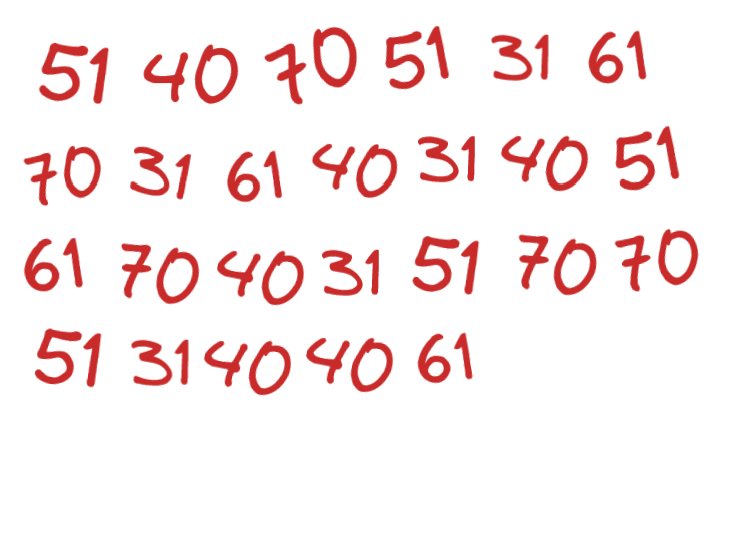 51 40 70 51 31 61
70 31 61 40 31 40 51
61 70 40 31 51 70 70
51 31 40 40 61